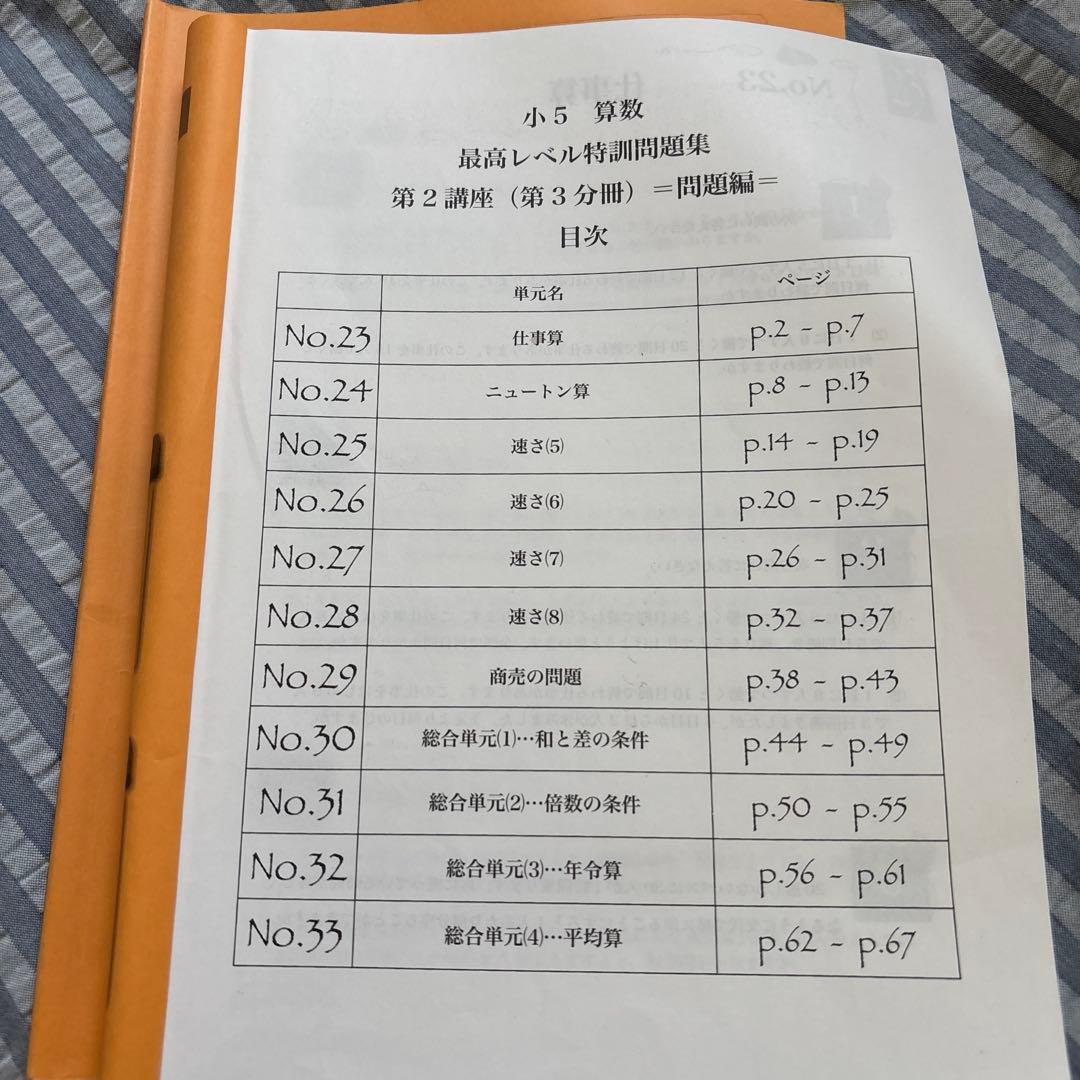 小5 算数
最高レベル特訓問題集
第2講座（第3分冊）＝問題編＝
目次
単元名 ページ
No.23 仕事算 p.2 ~ p.7
No.24 ニュートン算 p.8 ~ p.13
No.25 速さ⑸ p.14 ~ p.19
No.26 速さ⑹ p.20 ~ p.25
No.27 速さ⑺ p.26 ~ p.31
No.28 速さ⑻ p.32 ~ p.37
No.29 商売の問題 p.38 ~ p.43
No.30 総合単元⑴…和と差の条件 p.44 ~ p.49
No.31 総合単元⑵…倍数の条件 p.50 ~ p.55
No.32 総合単元⑶…年令算 p.56 ~ p.61
No.33 総合単元⑷…平均算 p.62 ~ p.67